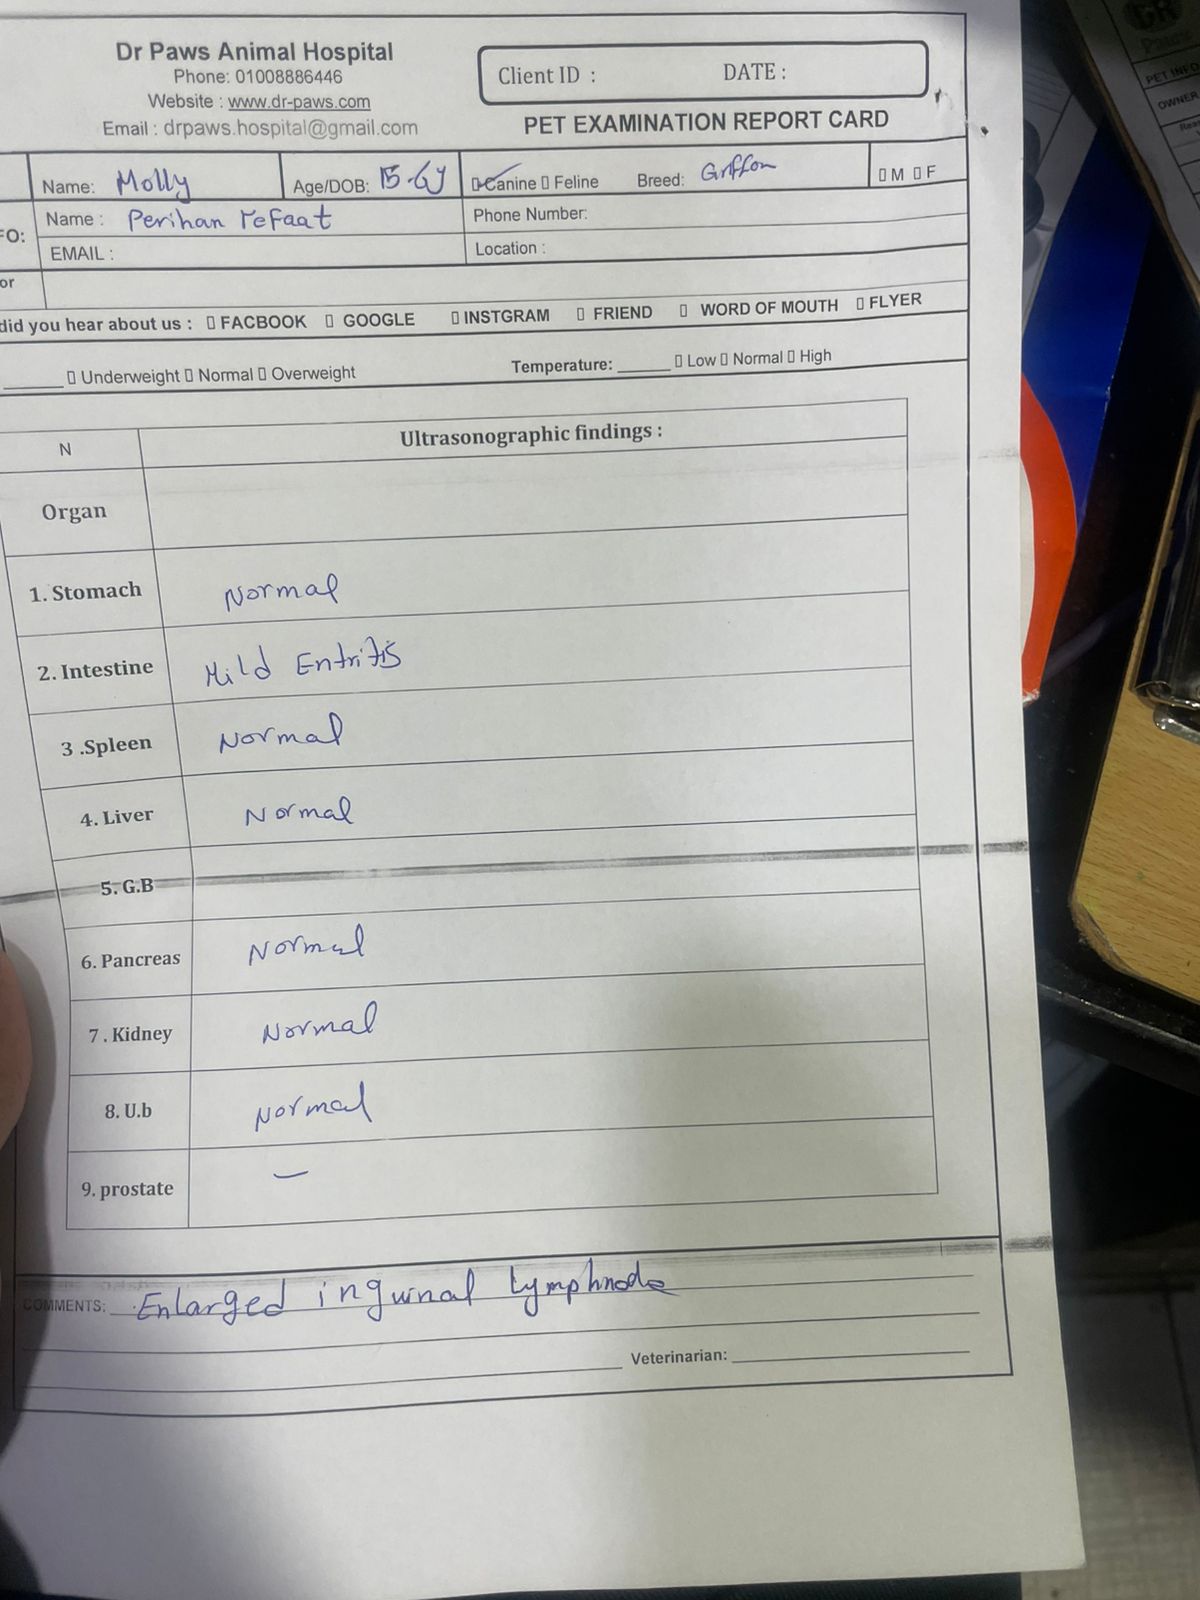 Dr Paws Animal Hospital
Phone: 01008886446
Website : www.dr-paws.com
Email : drpaws.hospital@gmail.com
Client ID : DATE :
PET EXAMINATION REPORT CARD
Name: Molly Age/DOB: Canine Feline Breed: Griffon M F
Name : Perihan refaat Phone Number:
FO:
EMAIL : Location :
or
did you hear about us : FACBOOK GOOGLE INSTGRAM FRIEND WORD OF MOUTH FLYER
Underweight Normal Overweight Temperature: Low Normal High
N Ultrasonographic findings :
Organ
1. Stomach Normal
2. Intestine Mild Entritis
3 .Spleen Normal
4. Liver Normal
5. G.B
6. Pancreas Normal
7 . Kidney Normal
8. U.b Normal
9. prostate —
COMMENTS: Enlarged inguinal lymphnode
Veterinarian:
PET INFO
OWNER